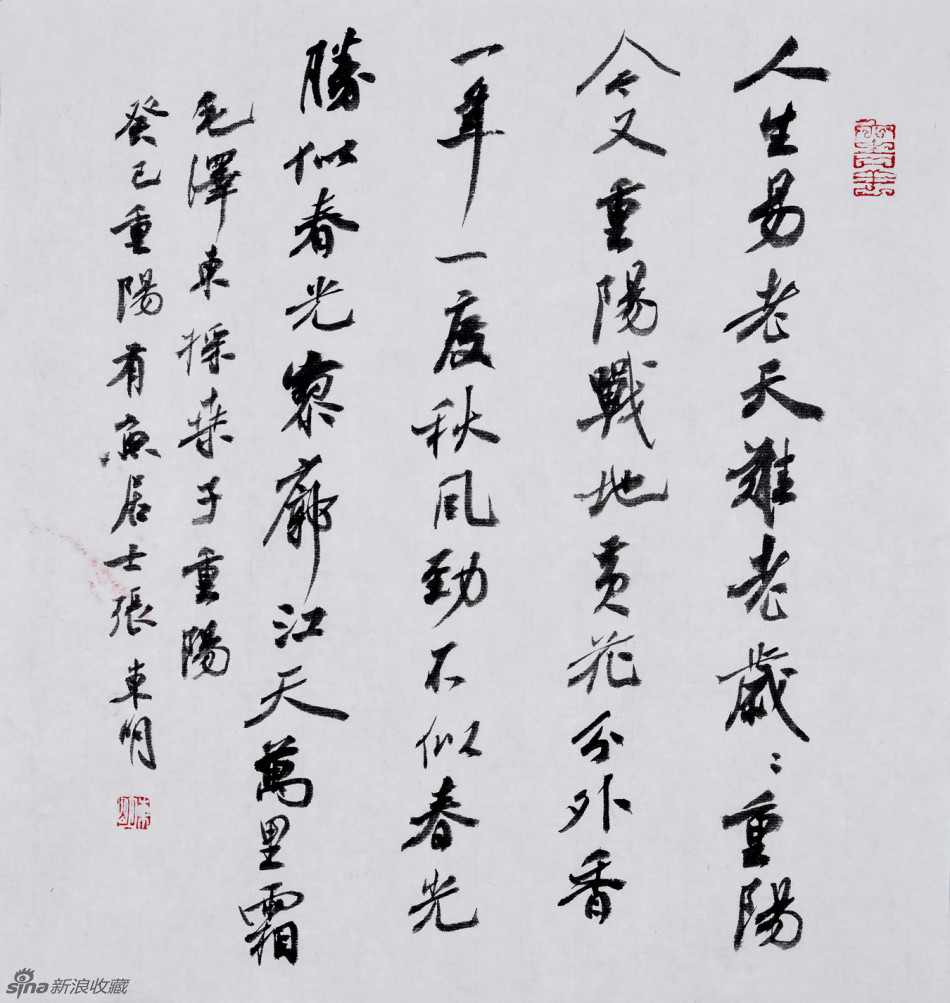 人生易老天難老歲〻重陽
今又重陽戰地黄花分外香
一年一度秋風勁不似春光
勝似春光寥廓江天萬里霜
毛澤東採桑子重陽
癸巳重陽有魚居士張東明
sina新浪收藏